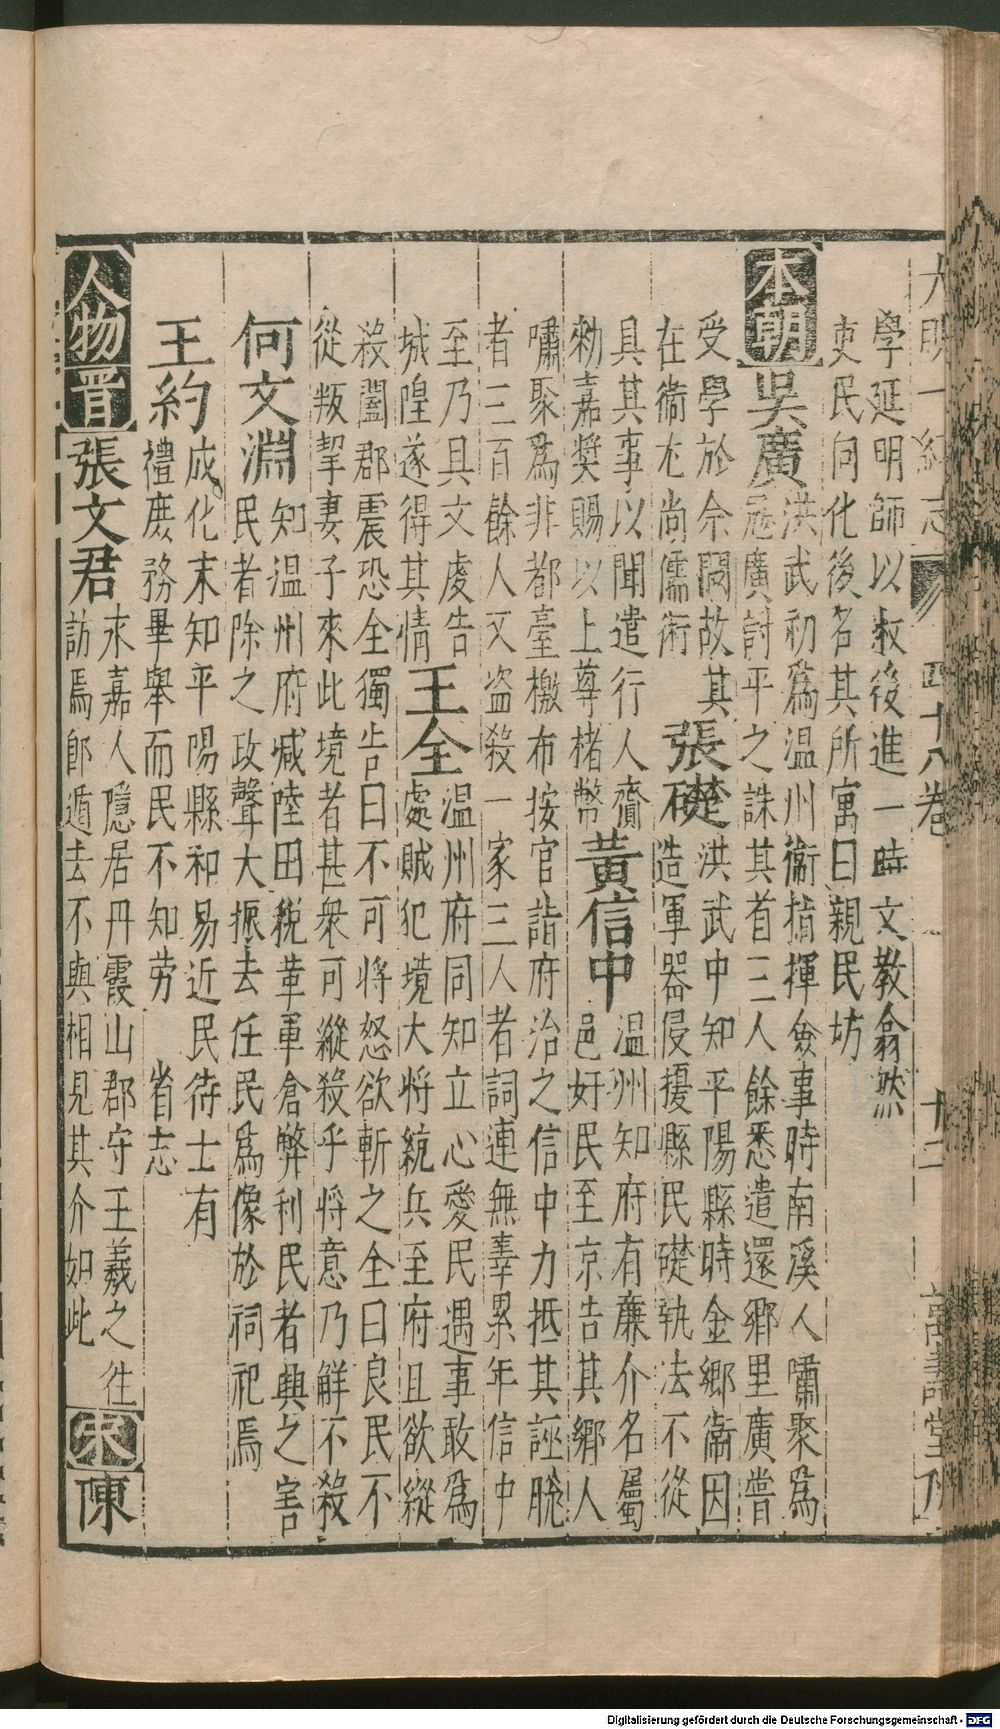 大明一統志 四十八卷 十二
學延明師以敎後進一時文教翕然
吏民向化後名其所寓曰親民坊
本朝 吳廣
洪武初爲温州衞指揮僉事時南溪人嘯聚爲
冦廣討平之誅其首二人餘悉遣還鄉里廣嘗
受學於佘闕故其
在衞尢尚儒術
張礎
洪武中知平陽縣時金鄉衞因
造軍器侵擾縣民礎執法不從
具其事以聞遣行人齎
勑嘉奬賜以上尊楮幣
黃信中
温州知府有廉介名屬
邑奸民至京告其鄉人
嘯聚爲非都臺檄布按官詣府治之信中力抵其誣脫
者三百餘人又盜殺一家三人者詞連無辜累年信中
至乃具文虔告
城隍遂得其情
王全
温州府同知立心愛民遇事敢爲
處賊犯境大將統兵至府且欲縱
殺闔郡震恐全獨告曰不可將怒欲斬之全曰良民不
從叛挈妻子來此境者甚衆可縱殺乎將意乃解不殺
何文淵
知温州府烕陸田稅革軍倉弊利民者興之害
民者除之政聲大振去任民爲像於祠祀焉
王約
成化末知平陽縣和易近民待士有
禮庻務畢舉而民不知劳 省志
人物 晋 張文君
永嘉人隱居丹霞山郡守王羲之徃
訪焉郎遁去不與相見其介如此
宋 陳
Digitalisierung gefördert durch die Deutsche Forschungsgemeinschaft - DFG